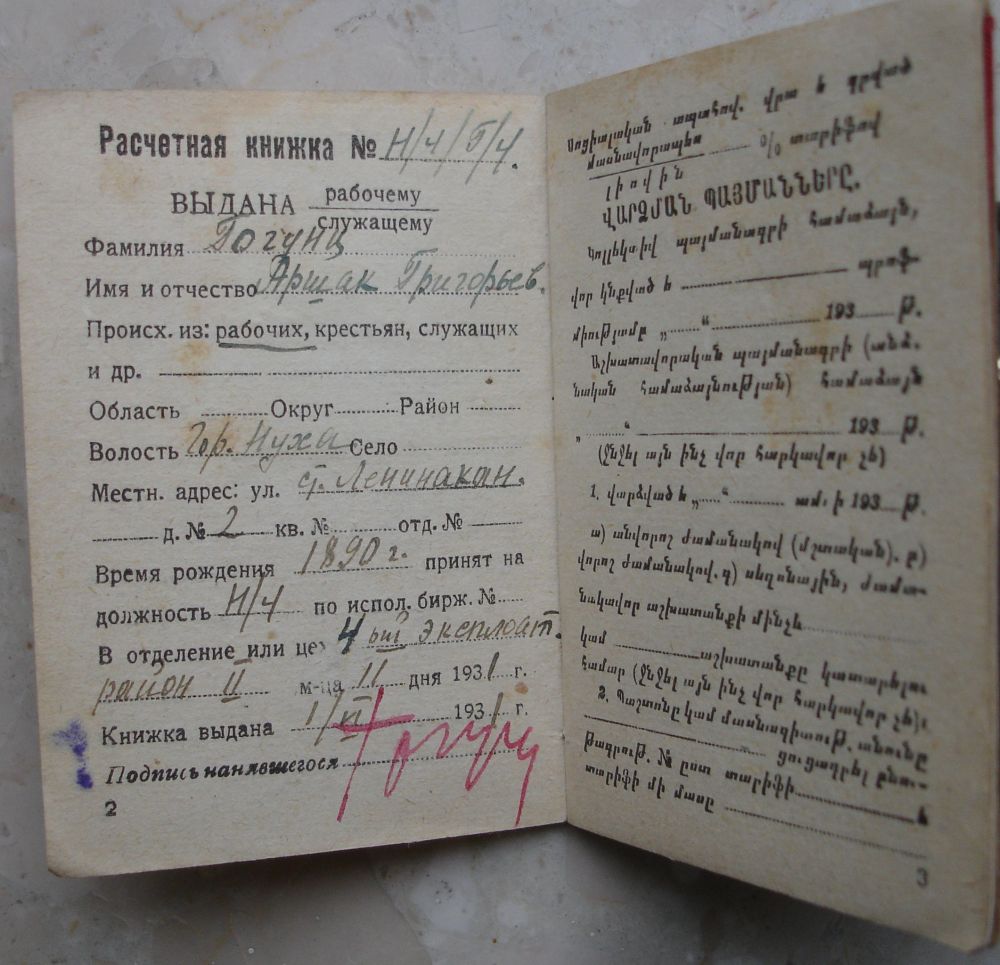 Расчетная книжка № Н/Ч/5/4.
ВЫДАНА рабочему
служащему
Фамилия Гогунц
Имя и отчество Аршак Григорьев.
Происх. из: рабочих, крестьян, служащих
и др.
Область Округ Район
Волость Гор. Нуха Село
Местн. адрес: ул. ст. Ленинакан.
д. № 2 кв. № отд. №
Время рождения 1890 г. принят на
должность Н/Ч по испол. бирж. №
В отделение или цех 4 ый эксплоат.
район II м-ца 11 дня 1931 г.
Книжка выдана 1/VI 1931 г.
Подпись нанявшегося
2
Սոցիալական ապահով. վրա է գրված
մասնավորապես
լիովին % տարիֆով
ՎԱՐՁՄԱՆ ՊԱՅՄԱՆՆԵՐԸ.
Կոլլեկտիվ պայմանագրի համաձայն,
վոր կնքված է պրոֆ-
միությամբ „ “ 193 թ.
Աշխատավորական պայմանագրի (անձ.
նական համաձայնության) համաձայն
„ “ 193 թ.
(ջնջել այն ինչ վոր հարկավոր չե)
1. վարձված է „ “ ամ. ի 193 թ.
ա) անվորոշ ժամանակով (մշտական). բ)
վորոշ ժամանակով. գ) սեզոնային, ժամա-
նակավոր աշխատանքի մինչև
կամ աշխատանքը կատարելու
համար (ջնջել այն ինչ վոր հարկավոր չե)։
2. Պաշտոնը կամ մասնագիտութ. անունը
ցուցադրել ընտ-
թագրութ. № ըստ տարիֆի և
տարիֆի մի մասը
3